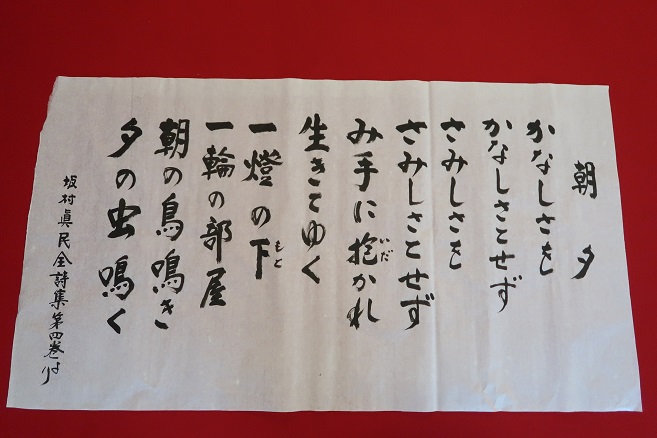 朝夕
かなしさも
かなしさとせず
さみしさも
さみしさとせず
み手に抱かれ
いだ
生きてゆく
一燈の下
もと
一輪の部屋
朝の鳥鳴き
夕の虫鳴く
坂村眞民全詩集第四巻より